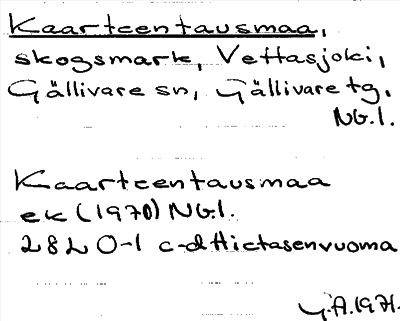 Kaarteentausmaa,
skogsmark, Vettasjoki,
Gällivare sn, Gällivare tg,
Nb.l.
Kaarteentausmaa
ek (1970) Nb.l.
28L 0-1 c-d Hietasenvuoma
G.A. 1971.